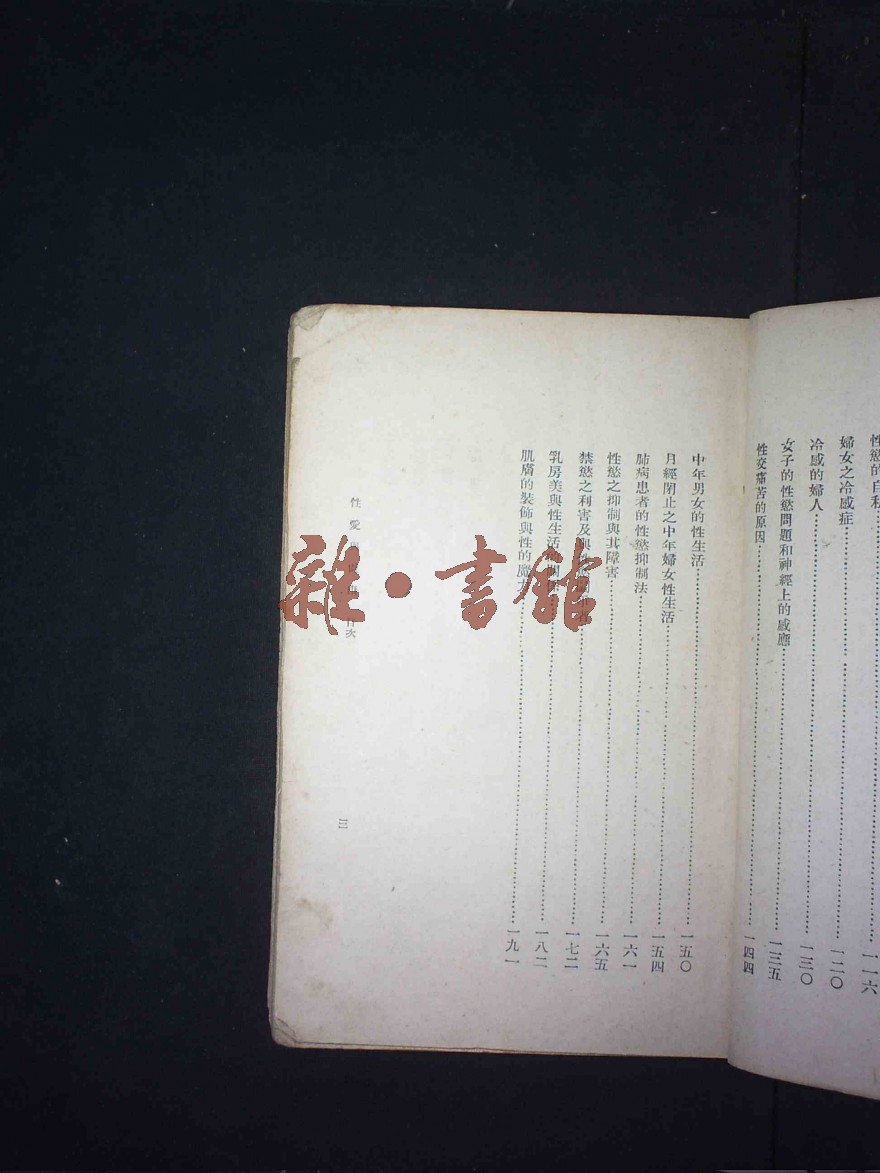 性慾的自
一一六
婦女之冷感症
一二〇
冷感的婦人
一三〇
女子的性慾問題和神經上的感應
一三五
性交痛苦的原因
一四四
中年男女的性生活
一五〇
月經閉止之中年婦女性生活
一五四
肺病患者的性慾抑制法
一六一
性慾之抑制與其障害
一六五
禁慾之利害及與性
一七二
乳房美與性生活
一八二
肌膚的裝飾與性的魔力
一九一
性愛
目次
三
雜·書館